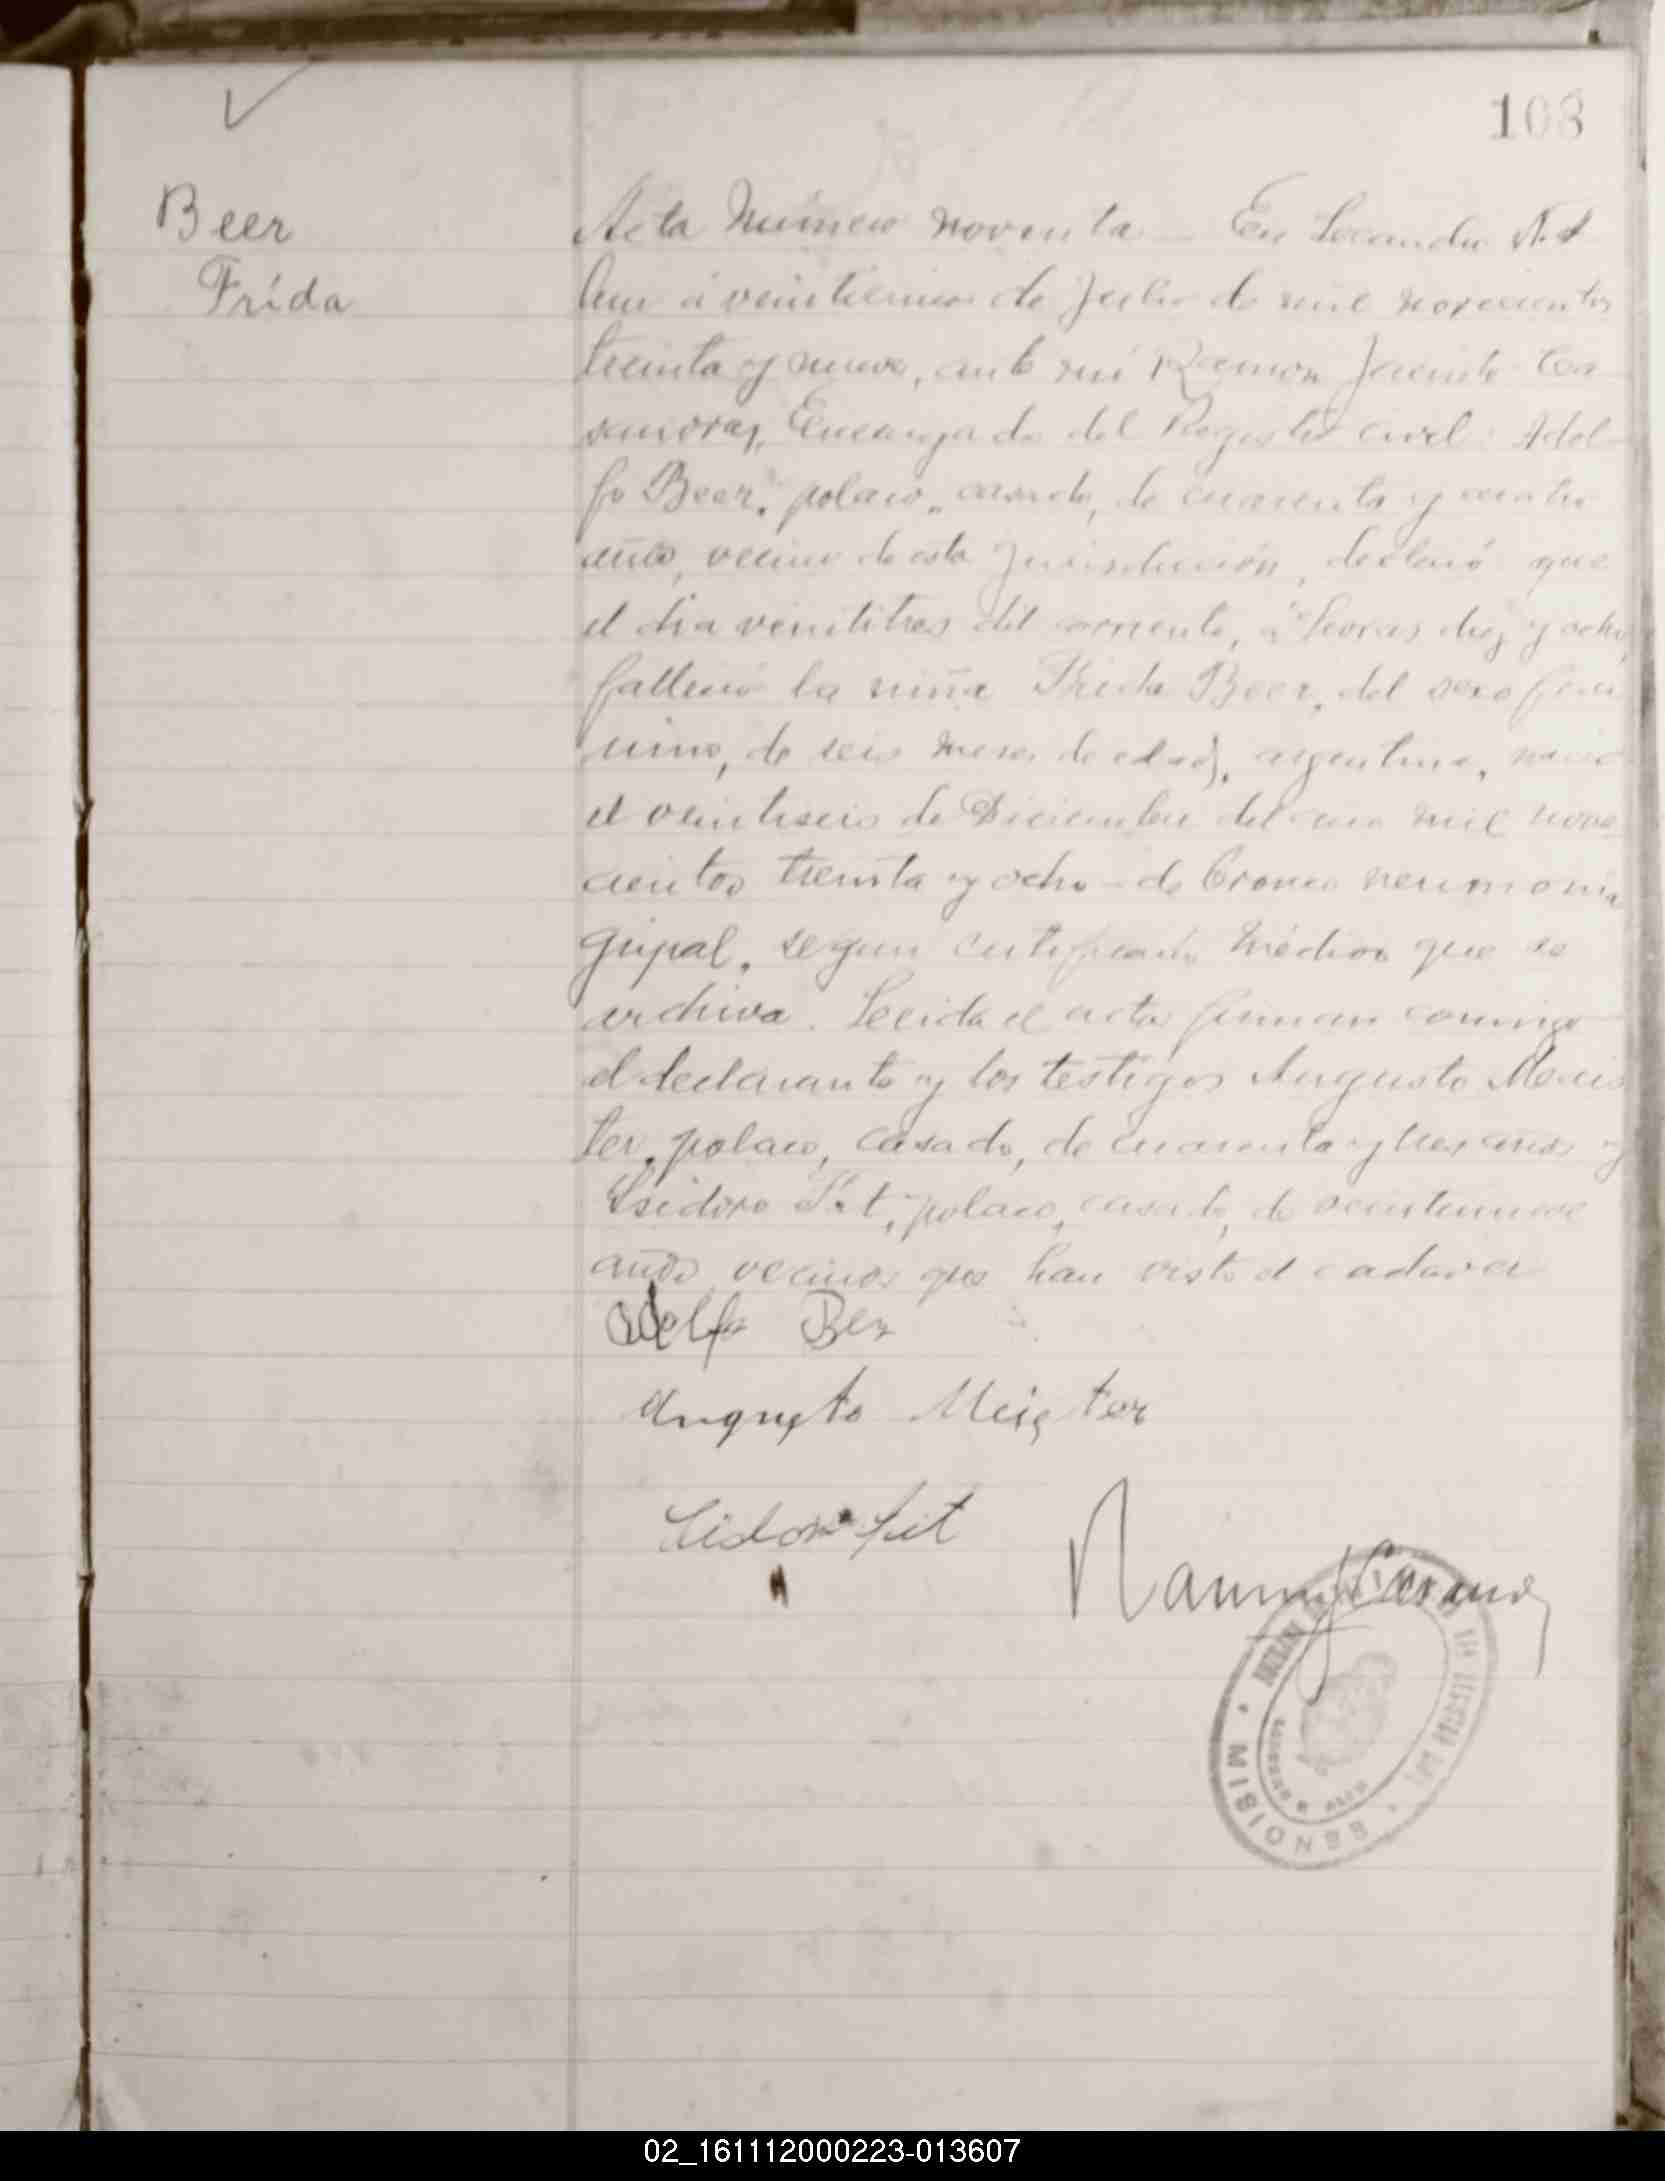 108
Beer
Frida
Acta Número noventa — En Leandro N. A
lem á veinticinco de Julio de mil novecientos
treinta y nueve, ante mí Ramon Jacinto Ca
sanovas, Encargado del Registro civil: Adol
fo Beer, polaco, casado, de cuarenta y cuatro
años, vecino de esta Jurisdicción, declaró que
el dia veintitres del corriente, á horas diez y ocho,
falleció la niña Frida Beer, del sexo feme
nino, de seis meses de edad, argentina, nació
el veintiseis de Diciembre del año mil nove
cientos treinta y ocho – de bronco neumonia
gripal, segun certificado médico que se
archiva. Leida el acta firman conmigo
el declarante y los testigos Augusto Meis
ter, polaco, casado, de cuarenta y tres años y
Isidoro polaco, casado, de veintinueve
años vecinos que han visto el cadaver
Adolfo Ber
Augusto Meister
Isidoro
Ramon J Casanovas
MISIONES
02_161112000223-013607